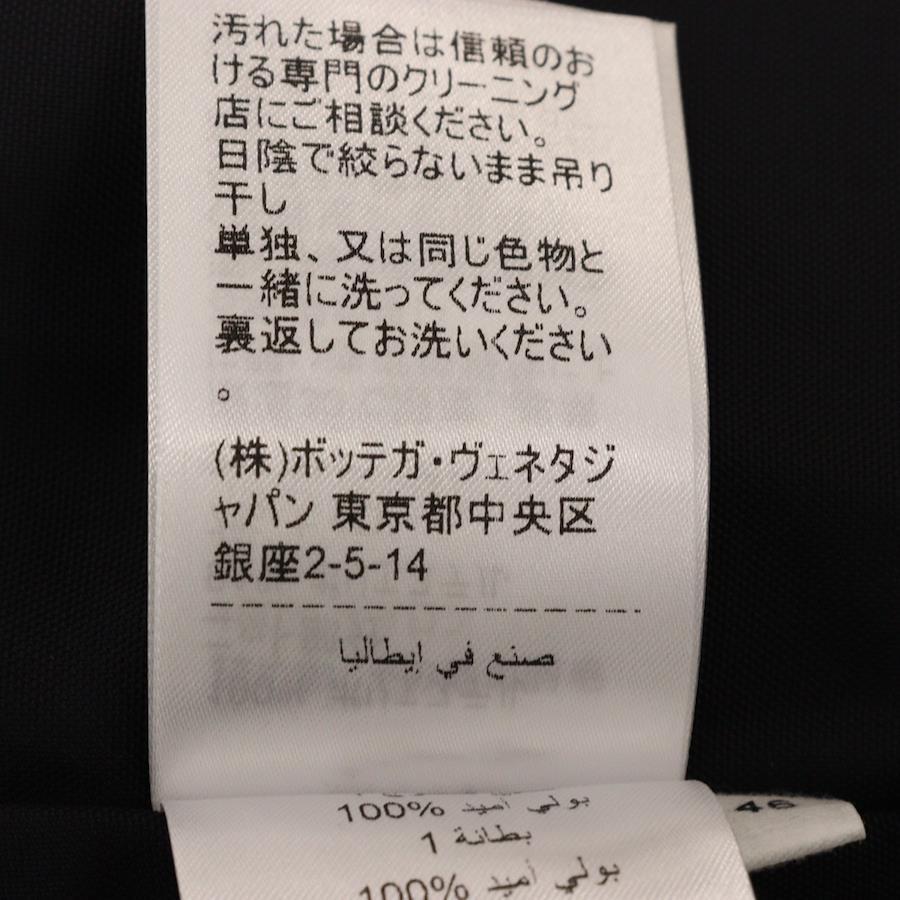 汚れた場合は信頼のお
ける専門のクリーニング
店にご相談ください。
日陰で絞らないまま吊り
干し
単独、又は同じ色物と
一緒に洗ってください。
裏返してお洗いください
。
(株)ボッテガ・ヴェネタジ
ャパン 東京都中央区
銀座2-5-14
صنع في إيطاليا
100% بولي أميد
بطانة 1
100% بولي أميد
46